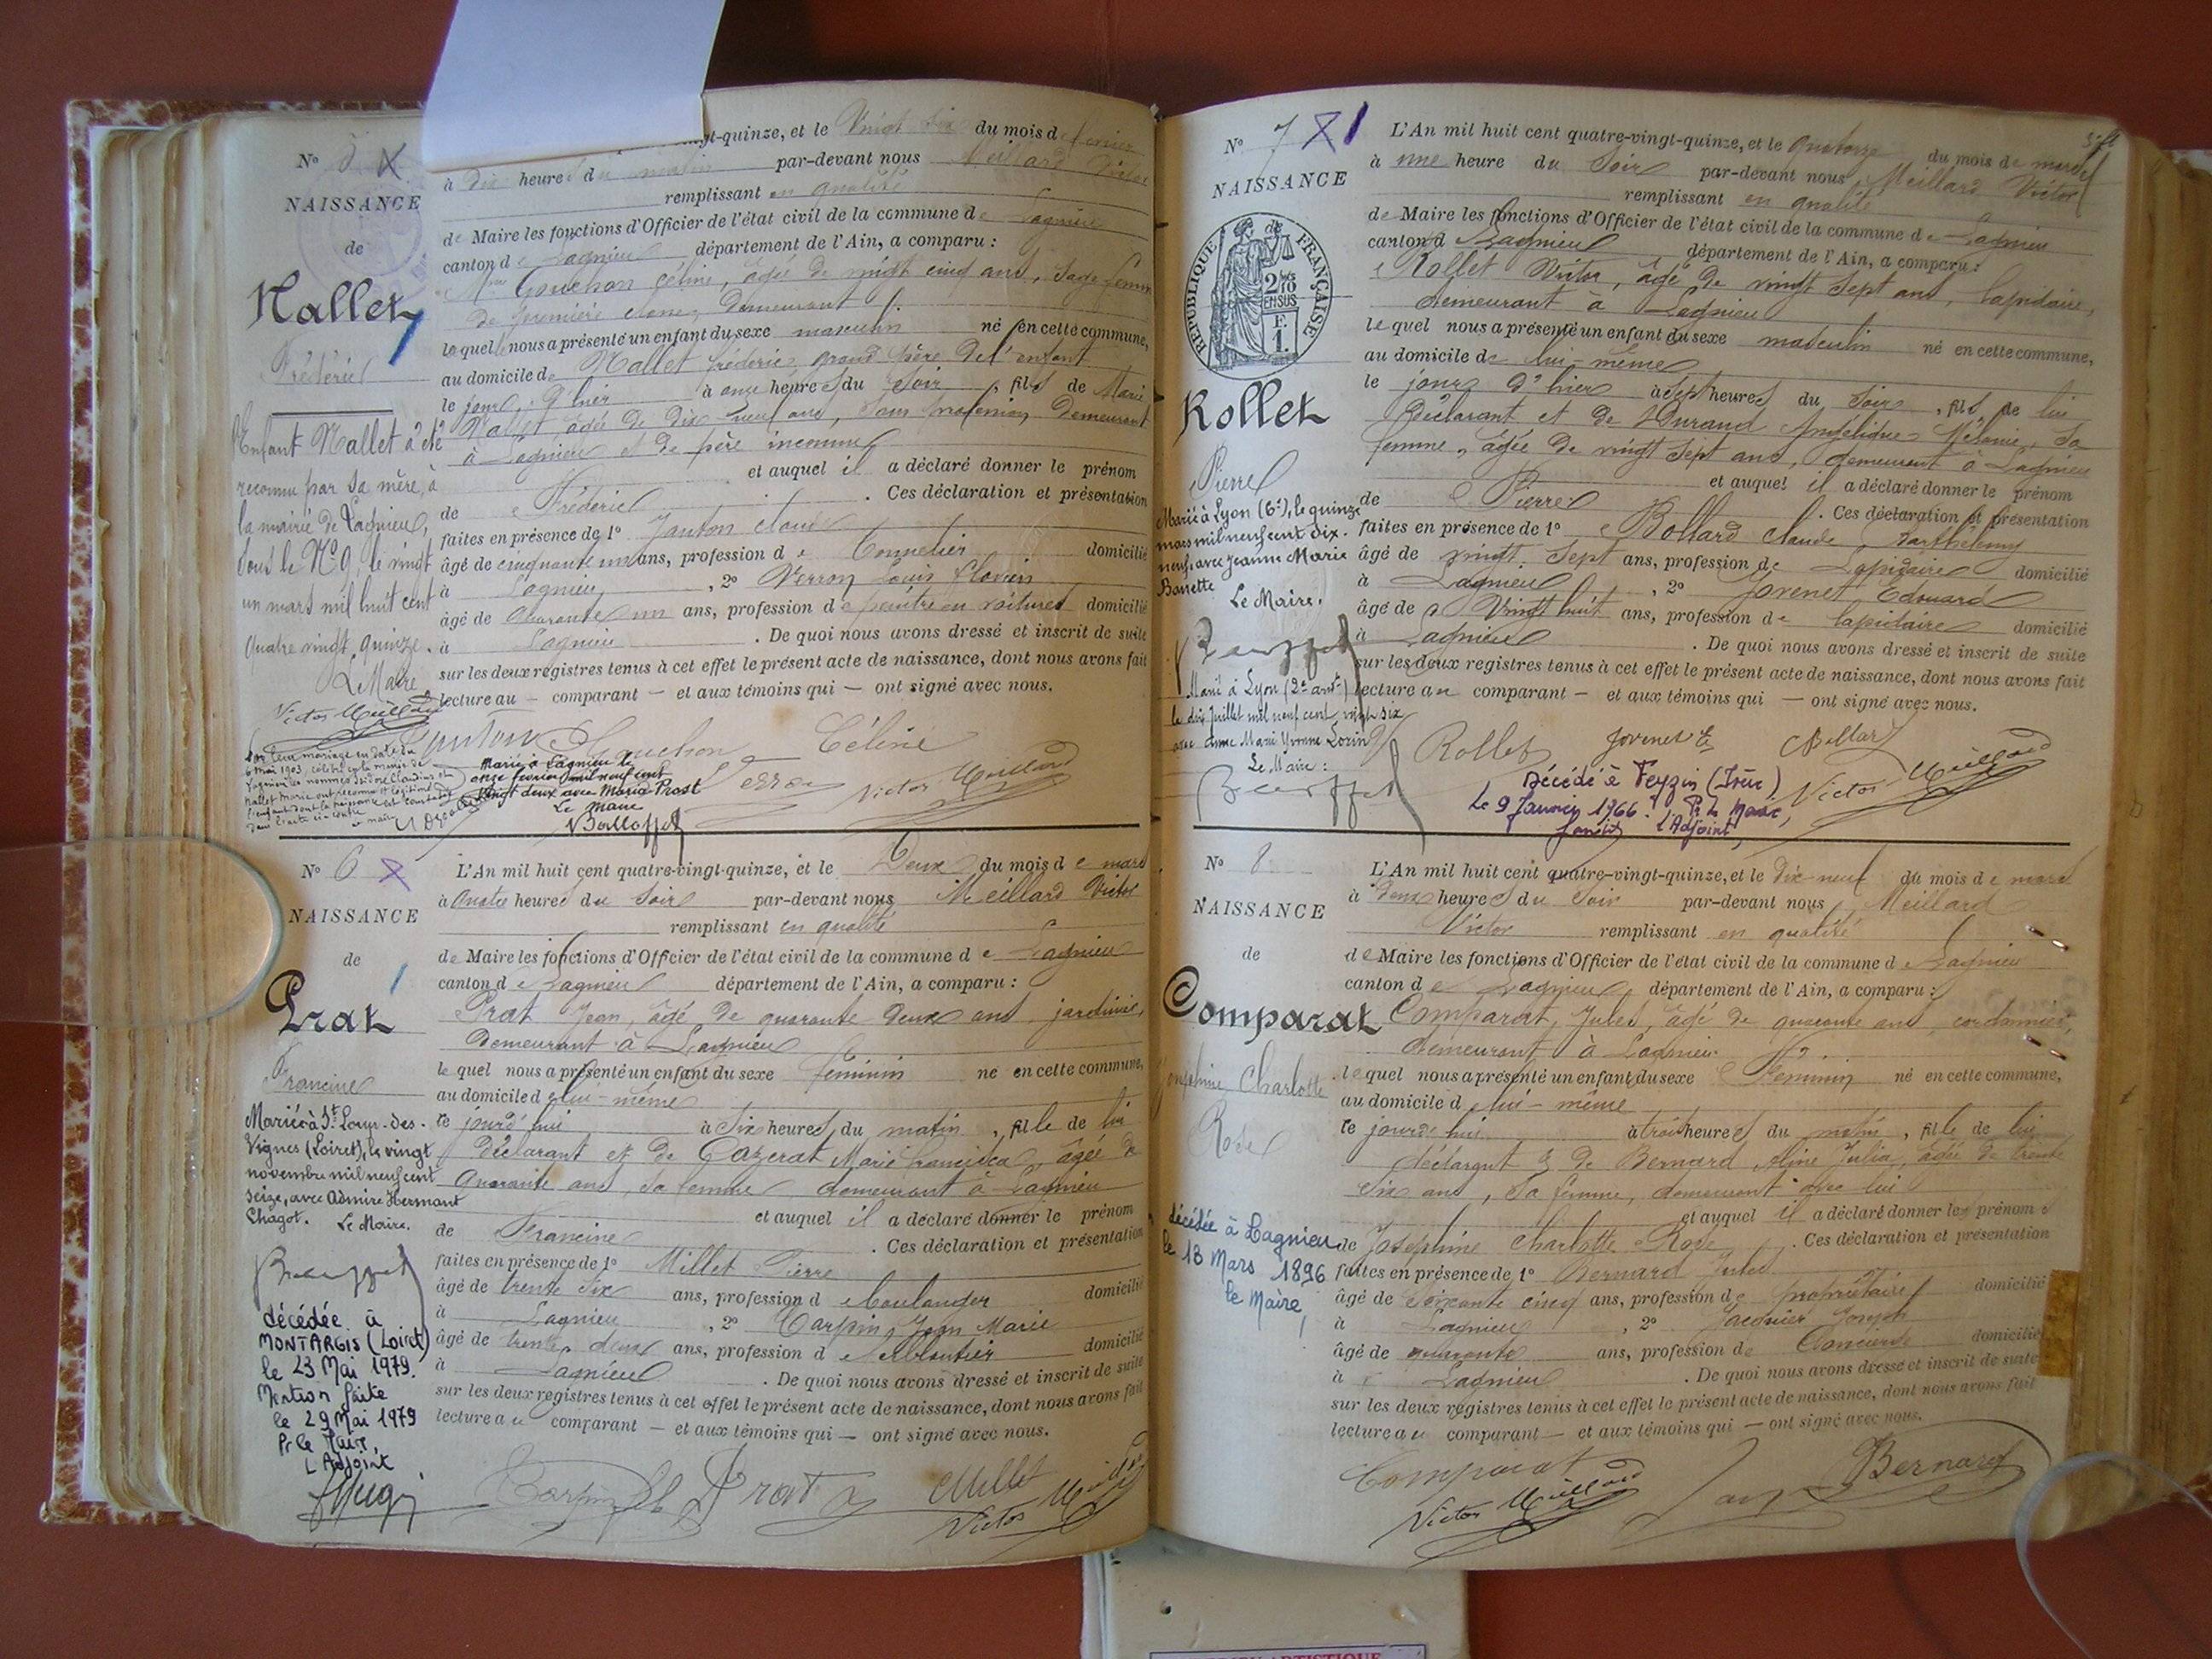 N° 5
NAISSANCE
de
Nallet
Frédéric
Enfant Nallet a été
reconnu par sa mère, à
la mairie de Lagnieu,
sous le N° 9, le vingt
un mars mil huit cent
quatre vingt quinze.
Le Maire
Victor Meillard
gt-quinze, et le Vingt six du mois de fevrier
à dix heures du matin par-devant nous Meillard Victor
remplissant en qualité
de Maire les fonctions d'Officier de l'état civil de la commune de Lagnieu
canton de Lagnieu département de l'Ain, a comparu :
Mme Gouchon Céline, âgée de vingt cinq ans, sage femme
de première classe, demeurant
lequel nous a présenté un enfant du sexe masculin né en cette commune,
au domicile de Nallet Fréderic, grand père de l'enfant
le jour d'hier à onze heures du soir, fils de Marie
Nallet, âgée de dix neuf ans, sans profession, demeurant
à Lagnieu et de père inconnu
et auquel il a déclaré donner le prénom
de Fréderic . Ces déclaration et présentation
faites en présence de 1° Janton Claude
âgé de cinquante un ans, profession de Tonnelier domicilié
à Lagnieu, 2° Verron Louis Flavien
âgé de quarante un ans, profession de peintre en voitures domicilié
à Lagnieu . De quoi nous avons dressé et inscrit de suite
sur les deux registres tenus à cet effet le présent acte de naissance, dont nous avons fait
lecture au — comparant — et aux témoins qui — ont signé avec nous.
Janton Gouchon Céline
Verron Victor Meillard
Par leur mariage en date du
6 Mai 1903, célébré en la mairie de
Lagnieu les nommés Isidore Claudius et
Nallet Marie ont reconnu et légitimé
l'enfant dont la naissance est constatée
dans l'acte ci-contre
Marié à Lagnieu le
onze fevrier mil neuf cent
vingt deux avec Maria Prost
Le Maire
N° 6
NAISSANCE
de
Prat
Francine
Mariée à St Loup-des-
Vignes (Loiret), le vingt
novembre mil neuf cent
seize, avec Admire Hermant
Chagot. Le Maire.
décédée à
MONTARGIS (Loiret)
le 23 Mai 1979.
Mention faite
le 29 Mai 1979
Pr le Maire,
L'Adjoint
L'An mil huit cent quatre-vingt-quinze, et le Deux du mois de mars
à quatre heures du soir par-devant nous Meillard Victor
remplissant en qualité
de Maire les fonctions d'Officier de l'état civil de la commune de Lagnieu
canton de Lagnieu département de l'Ain, a comparu :
Prat Jean, âgé de quarante deux ans, jardinier,
demeurant à Lagnieu
lequel nous a présenté un enfant du sexe féminin né en cette commune,
au domicile de lui-même
le jourd'hui à six heures du matin, fille de lui
déclarant et de Cazerat Marie Francisca, âgée de
quarante ans, sa femme demeurant à Lagnieu
et auquel il a déclaré donner le prénom
de Francine . Ces déclaration et présentation
faites en présence de 1° Millet Pierre
âgé de trente six ans, profession de boulanger domicilié
à Lagnieu, 2° Carpin, Jean Marie
âgé de trente deux ans, profession de ferblantier domicilié
à Lagnieu . De quoi nous avons dressé et inscrit de suite
sur les deux registres tenus à cet effet le présent acte de naissance, dont nous avons fait
lecture au comparant — et aux témoins qui — ont signé avec nous.
Carpin Prat Millet
Victor Meillard
N° 7
NAISSANCE
de
RÉPUBLIQUE FRANÇAISE
2/10 EN SUS
F. 1.
Rollet
Pierre
Marié à Lyon (6e), le quinze
mars mil neuf cent dix-
neuf, avec Jeanne Marie
Le Maire.
Marié à Lyon (2e arrt)
le dix Juillet mil neuf cent vingt six
avec Anne Marie Yvonne Lorin
Le Maire :
L'An mil huit cent quatre-vingt-quinze, et le quatorze du mois de mars
à une heure du soir par-devant nous Meillard Victor
remplissant en qualité
de Maire les fonctions d'Officier de l'état civil de la commune de Lagnieu
canton de Lagnieu département de l'Ain, a comparu :
Rollet Victor, âgé de vingt sept ans, lapidaire,
demeurant à Lagnieu
lequel nous a présenté un enfant du sexe masculin né en cette commune,
au domicile de lui-même
le jour d'hier à sept heures du soir, fils de lui
déclarant et de Durand Angélique Mélanie, sa
femme, âgée de vingt sept ans, demeurant à Lagnieu
et auquel il a déclaré donner le prénom
de Pierre . Ces déclaration et présentation
faites en présence de 1° Bollard Claude Barthélemy
âgé de vingt sept ans, profession de Lapidaire domicilié
à Lagnieu, 2° Jovenet Edouard
âgé de Vingt huit ans, profession de lapidaire domicilié
à Lagnieu . De quoi nous avons dressé et inscrit de suite
sur les deux registres tenus à cet effet le présent acte de naissance, dont nous avons fait
lecture au comparant — et aux témoins qui — ont signé avec nous.
Rollet Jovenet E Bollard
Victor Meillard
Décédé à Feyzin (Isère)
Le 9 Janvier 1966. Pr le Maire,
L'Adjoint,
N° 8
NAISSANCE
de
Comparat
Joséphine Charlotte
Rose
décédée à Lagnieu
le 13 Mars 1896
le Maire,
L'An mil huit cent quatre-vingt-quinze, et le dix neuf du mois de mars
à deux heures du soir par-devant nous Meillard
Victor remplissant en qualité
de Maire les fonctions d'Officier de l'état civil de la commune de Lagnieu
canton de Lagnieu département de l'Ain, a comparu :
Comparat, Jules, âgé de quarante ans, cordonnier,
demeurant à Lagnieu
lequel nous a présenté un enfant du sexe Féminin né en cette commune,
au domicile de lui-même
le jourd'hui à trois heures du matin, fille de lui
déclarant & de Bernard Aline Julia, âgée de trente
six ans, sa femme, demeurant avec lui
et auquel il a déclaré donner les prénoms
de Joséphine Charlotte Rose . Ces déclaration et présentation
faites en présence de 1° Bernard Jules
âgé de soixante cinq ans, profession de propriétaire domicilié
à Lagnieu, 2° Jacquier Joseph
âgé de quarante ans, profession de Concierge domicilié
à Lagnieu . De quoi nous avons dressé et inscrit de suite
sur les deux registres tenus à cet effet le présent acte de naissance, dont nous avons fait
lecture au comparant — et aux témoins qui — ont signé avec nous.
Comparat Bernard
Victor Meillard